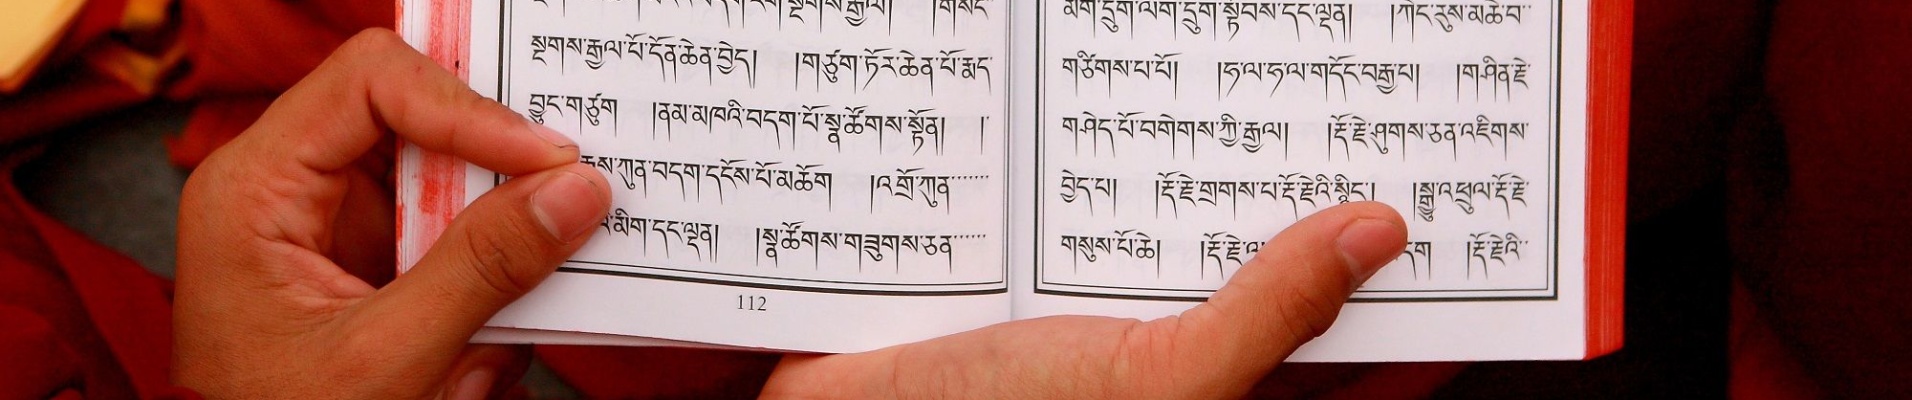 སྔགས་རྒྱལ་པོ་དོན་ཆེན་བྱེད། །གཙུག་ཏོར་ཆེན་པོ་རྨད་
བྱུང་གཙུག །ནམ་མཁའི་བདག་པོ་སྣ་ཚོགས་སྟོན། །
ཀུན་བདག་དངོས་པོ་མཆོག །འགྲོ་ཀུན་
མིག་དང་ལྡན། །སྣ་ཚོགས་གཟུགས་ཅན་
112
མིག་དྲུག་ལག་དྲུག་སྟོབས་དང་ལྡན། །ཀེང་རུས་མཆེ་བ་
གཙིགས་པ་པོ། །ཧ་ལ་ཧ་ལ་གདོང་བརྒྱ་པ། །གཤིན་རྗེ་
གཤེད་པོ་བགེགས་ཀྱི་རྒྱལ། །རྡོ་རྗེ་ཤུགས་ཅན་འཇིགས་
བྱེད་པ། །རྡོ་རྗེ་གྲགས་པ་རྡོ་རྗེའི་སྙིང་། །སྒྱུ་འཕྲུལ་རྡོ་རྗེ་
གསུས་པོ་ཆེ། །རྡོ་རྗེ་ །རྡོ་རྗེའི་